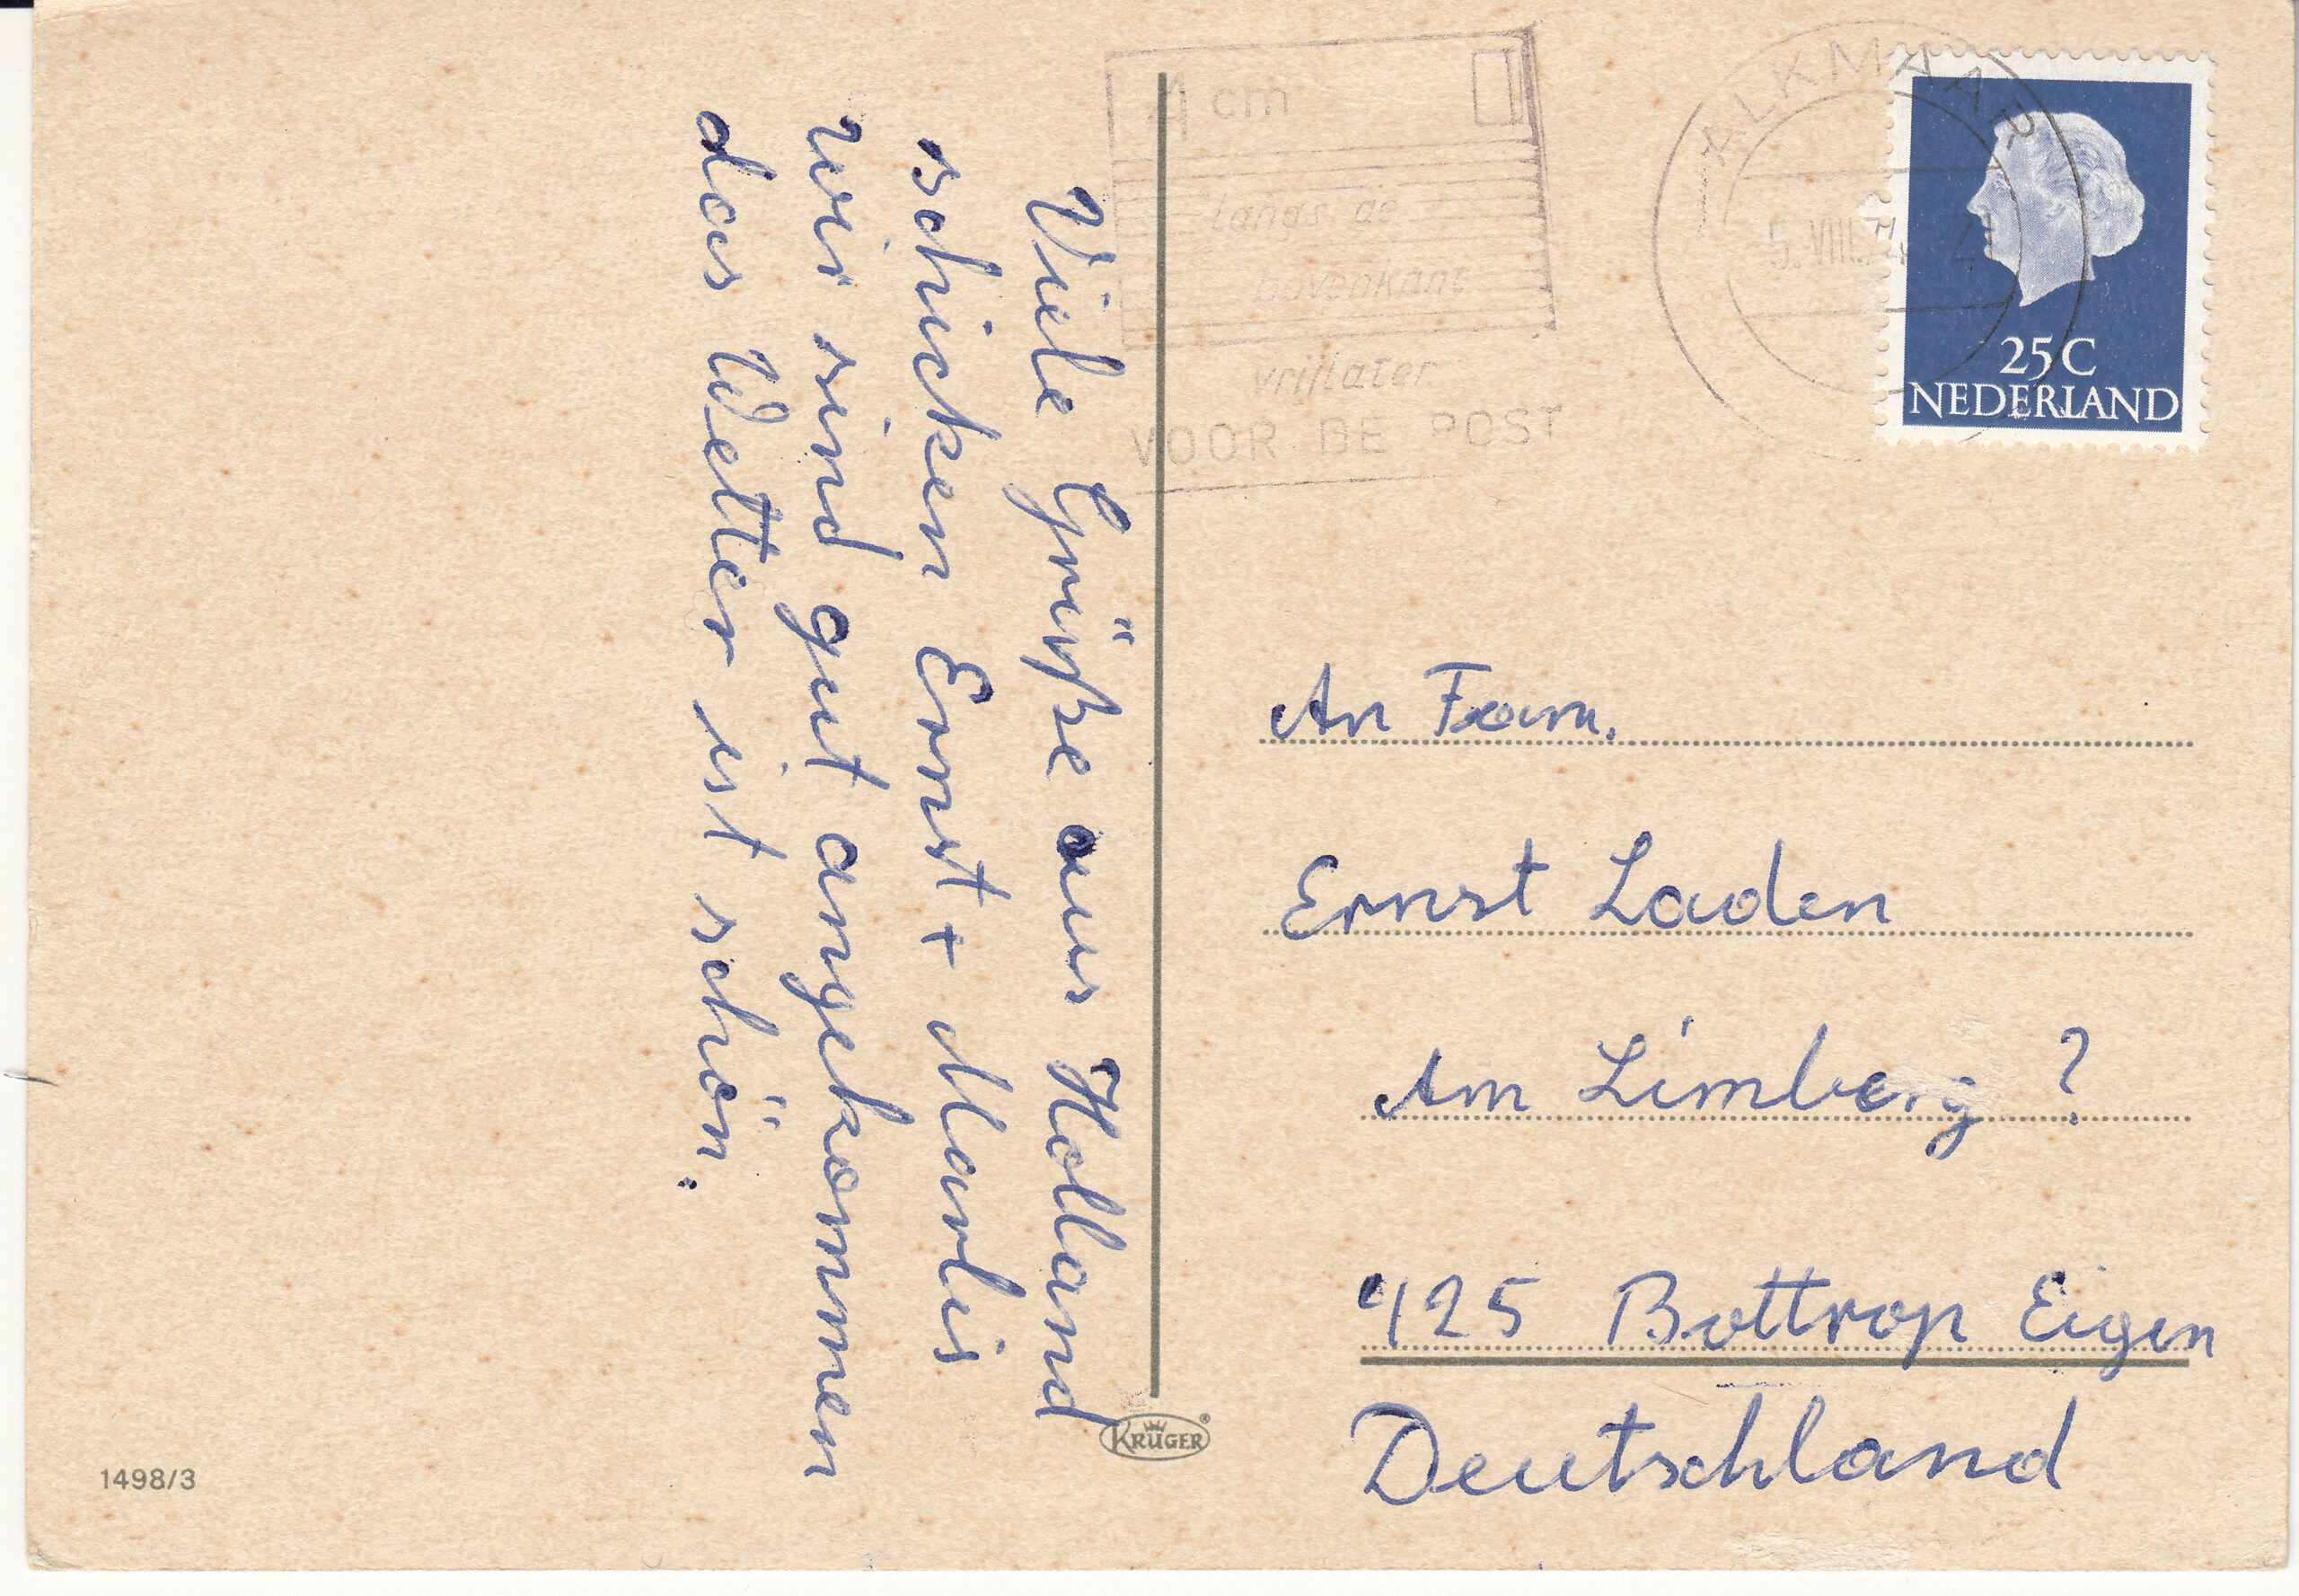 Viele Grüße aus Holland
schicken Ernst + Marlis
wir sind gut angekommen
das Wetter ist schön.
4 cm
langs de
bovenkant
vrijlaten
VOOR DE POST
ALKMAAR
5.VIII.
25 C
NEDERLAND
An Fam.
Ernst Laden
Am Limberg ?
425 Bottrop Eigen
Deutschland
KRÜGER
1498/3